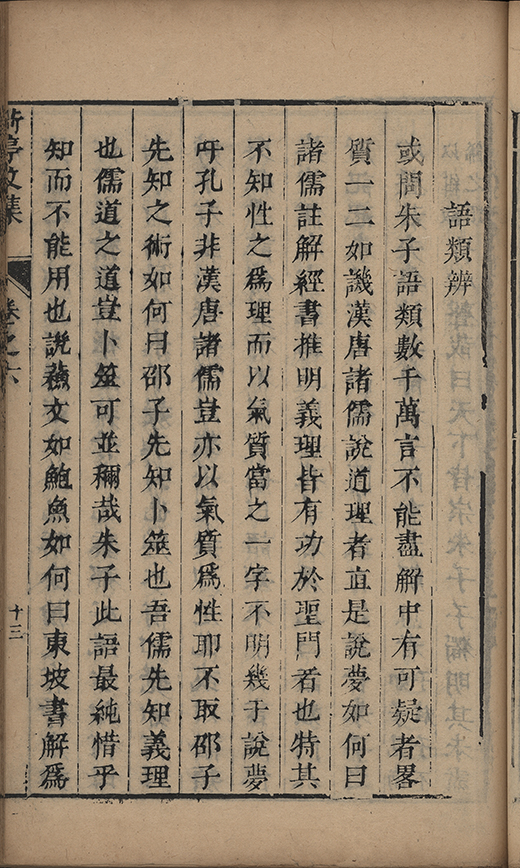 語類辨
或問朱子語類數千萬言不能盡解中有可疑者畧
質一二如譏漢唐諸儒說道理者直是說夢如何曰
諸儒註解經書推明義理皆有功於聖門者也特其
不知性之爲理而以氣質當之一字不明幾于說夢
吁孔子非漢唐諸儒豈亦以氣質爲性耶不取邵子
先知之術如何曰邵子先知卜筮也吾儒先知義理
也儒道之道豈卜筮可並稱哉朱子此語最純惜乎
知而不能用也說蘇文如鮑魚如何曰東坡書解爲
亭文集
卷之六
十三